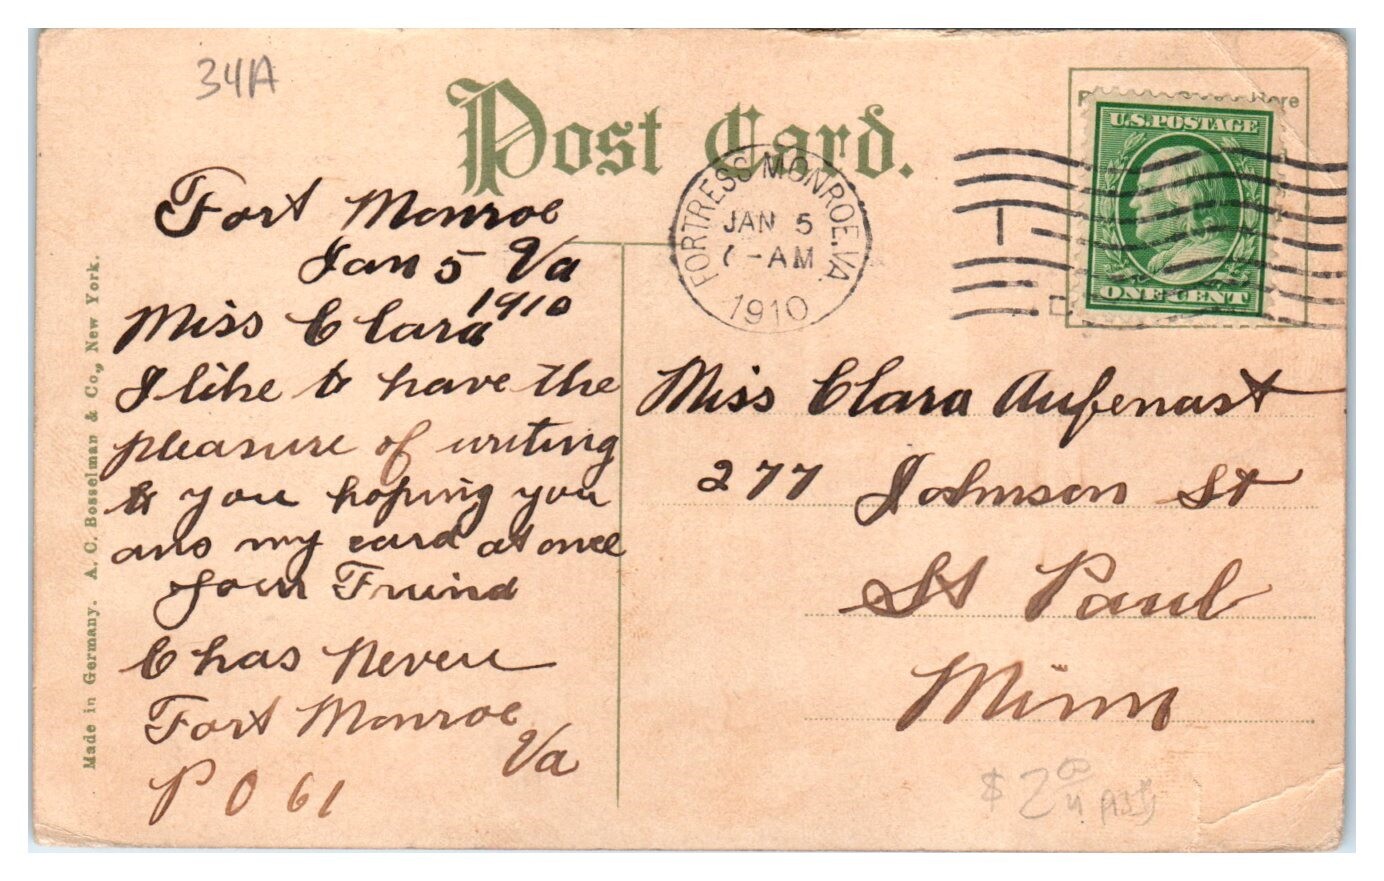 34A
Post Card.
FORTRESS MONROE, VA.
JAN 5
7-AM
1910
U.S. POSTAGE
ONE CENT
Fort Monroe
Jan 5 Va
1910
Miss Clara
I like to have the
pleasure of writing
to you hoping you
ans my card at once
your Friend
Chas
Fort Monroe
Va
P O 61
Miss Clara Aufenast
277 Johnson St
St Paul
Minn
$2.00
Made in Germany. A. C. Bosselman & Co., New York.